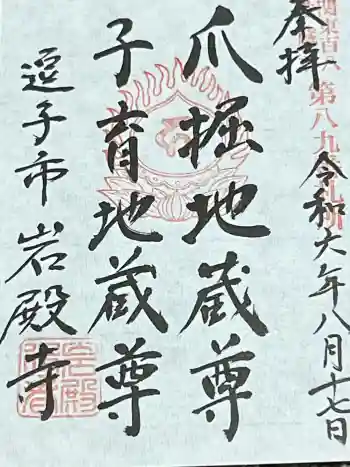 奉拝
第八九
令和六年八月十七日
爪掘地蔵尊
子育地蔵尊
逗子市岩殿寺